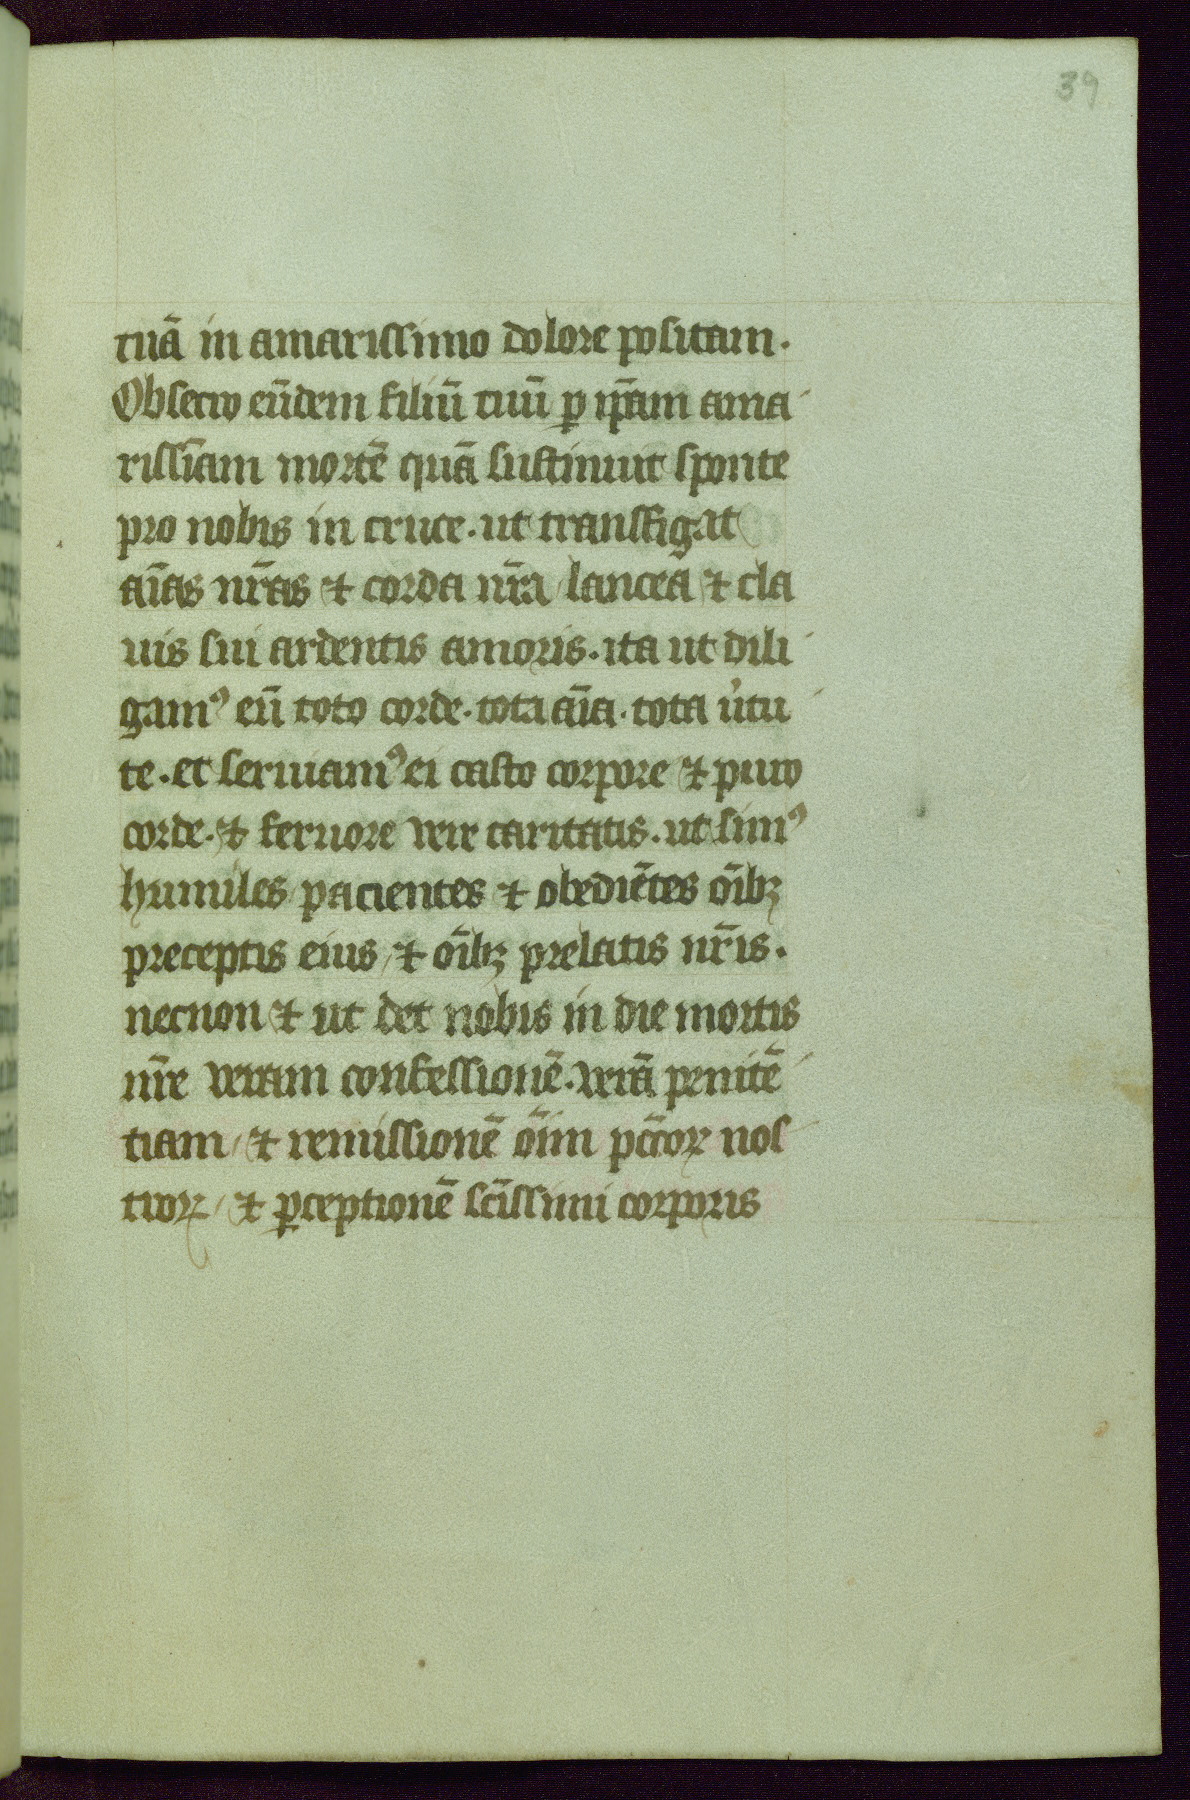 39
tuā in amarissimo dolore positam.
Obsecro eūdem filiū tuū ꝑ ip̄am ama
rissīam mortē quā sustinuit sponte
pro nobis in cruce. ut transfigat
aīas nr̄as ⁊ corda nr̄a / lancea ⁊ cla
uis sui ardentis amoris. ita ut dili
gamꝰ eū toto corde. tota aīa. tota u̾tu
te. et seruiamꝰ ei casto corpore ⁊ puro
corde. ⁊ feruore vere caritatis. ut simꝰ
humiles / pacientes ⁊ obediētes oībꝫ
preceptis eius / ⁊ oībꝫ prelatis nr̄is.
necnon ⁊ ut det nobis in die mortis
nr̄e veram confessionē. verā penitē
tiam / ⁊ remissionē oīm pcc̄oꝝ nos
troꝝ / ⁊ ꝑceptionē sc̄issimi corporis